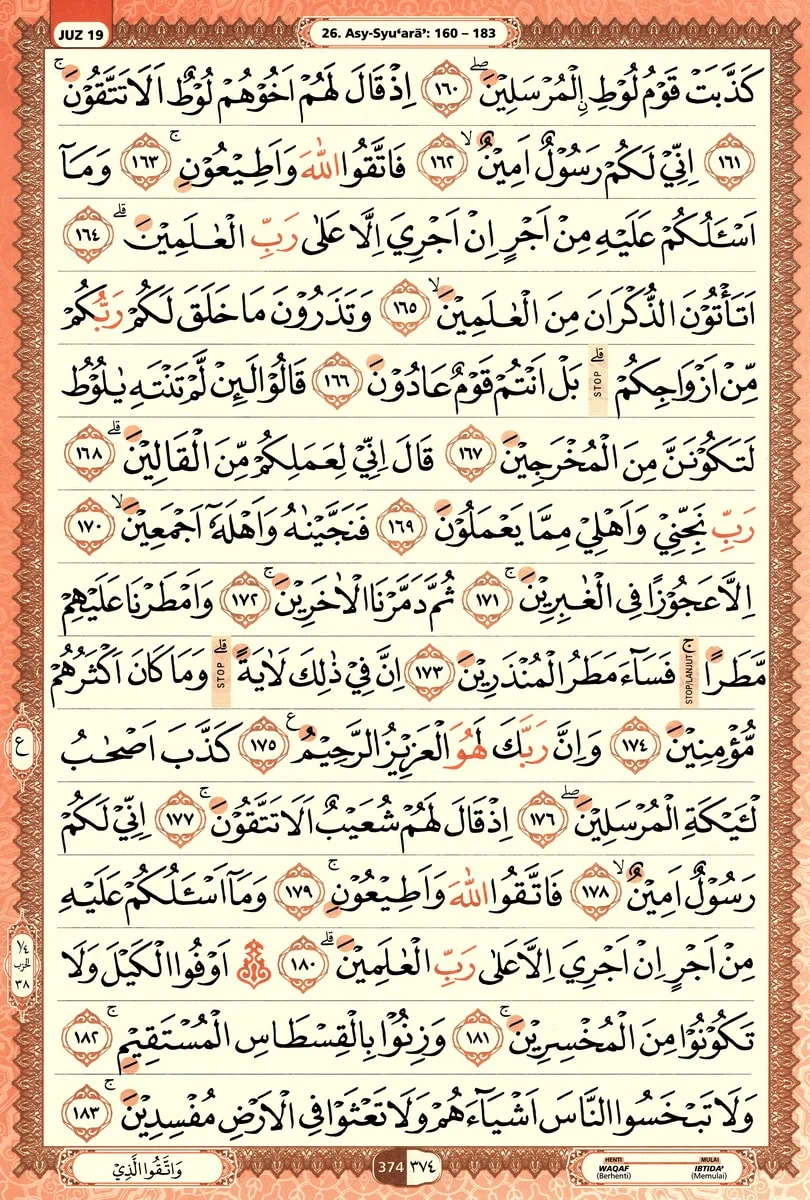 JUZ 19
26. Asy-Syu‘arā’: 160 – 183
كَذَّبَتْ قَوْمُ لُوْطِ ِۨالْمُرْسَلِيْنَ ۖ ١٦٠ اِذْ قَالَ لَهُمْ اَخُوْهُمْ لُوْطٌ اَلَا تَتَّقُوْنَ ۚ
١٦١ اِنِّيْ لَكُمْ رَسُوْلٌ اَمِيْنٌ ۙ ١٦٢ فَاتَّقُوا اللّٰهَ وَاَطِيْعُوْنِ ۚ ١٦٣ وَمَآ
اَسْـَٔلُكُمْ عَلَيْهِ مِنْ اَجْرٍ اِنْ اَجْرِيَ اِلَّا عَلٰى رَبِّ الْعٰلَمِيْنَ ۗ ١٦٤
اَتَأْتُوْنَ الذُّكْرَانَ مِنَ الْعٰلَمِيْنَ ۙ ١٦٥ وَتَذَرُوْنَ مَا خَلَقَ لَكُمْ رَبُّكُمْ
مِّنْ اَزْوَاجِكُمْ ۗ STOP بَلْ اَنْتُمْ قَوْمٌ عَادُوْنَ ١٦٦ قَالُوْا لَىِٕنْ لَّمْ تَنْتَهِ يٰلُوْطُ
لَتَكُوْنَنَّ مِنَ الْمُخْرَجِيْنَ ١٦٧ قَالَ اِنِّيْ لِعَمَلِكُمْ مِّنَ الْقَالِيْنَ ۗ ١٦٨
رَبِّ نَجِّنِيْ وَاَهْلِيْ مِمَّا يَعْمَلُوْنَ ١٦٩ فَنَجَّيْنٰهُ وَاَهْلَهٗٓ اَجْمَعِيْنَ ۙ ١٧٠
اِلَّا عَجُوْزًا فِى الْغٰبِرِيْنَ ۚ ١٧١ ثُمَّ دَمَّرْنَا الْاٰخَرِيْنَ ۚ ١٧٢ وَاَمْطَرْنَا عَلَيْهِمْ
مَّطَرًا ۚ STOP/LANJUT فَسَاۤءَ مَطَرُ الْمُنْذَرِيْنَ ١٧٣ اِنَّ فِيْ ذٰلِكَ لَاٰيَةً ۗ STOP وَمَا كَانَ اَكْثَرُهُمْ
مُّؤْمِنِيْنَ ١٧٤ وَاِنَّ رَبَّكَ لَهُوَ الْعَزِيْزُ الرَّحِيْمُ ࣖ ١٧٥ كَذَّبَ اَصْحٰبُ
لْـَٔيْكَةِ الْمُرْسَلِيْنَ ۖ ١٧٦ اِذْ قَالَ لَهُمْ شُعَيْبٌ اَلَا تَتَّقُوْنَ ۚ ١٧٧ اِنِّيْ لَكُمْ
رَسُوْلٌ اَمِيْنٌ ۙ ١٧٨ فَاتَّقُوا اللّٰهَ وَاَطِيْعُوْنِ ۚ ١٧٩ وَمَآ اَسْـَٔلُكُمْ عَلَيْهِ
مِنْ اَجْرٍ اِنْ اَجْرِيَ اِلَّا عَلٰى رَبِّ الْعٰلَمِيْنَ ۗ ١٨٠ ۞ اَوْفُوا الْكَيْلَ وَلَا
تَكُوْنُوْا مِنَ الْمُخْسِرِيْنَ ۚ ١٨١ وَزِنُوْا بِالْقِسْطَاسِ الْمُسْتَقِيْمِ ۚ ١٨٢
وَلَا تَبْخَسُوا النَّاسَ اَشْيَاۤءَهُمْ وَلَا تَعْثَوْا فِى الْاَرْضِ مُفْسِدِيْنَ ۚ ١٨٣
ع
١/٤
الحزب
٣٨
وَاتَّقُوا الَّذِيْ
374 ٣٧٤
HENTI WAQAF (Berhenti)
MULAI IBTIDA' (Memulai)